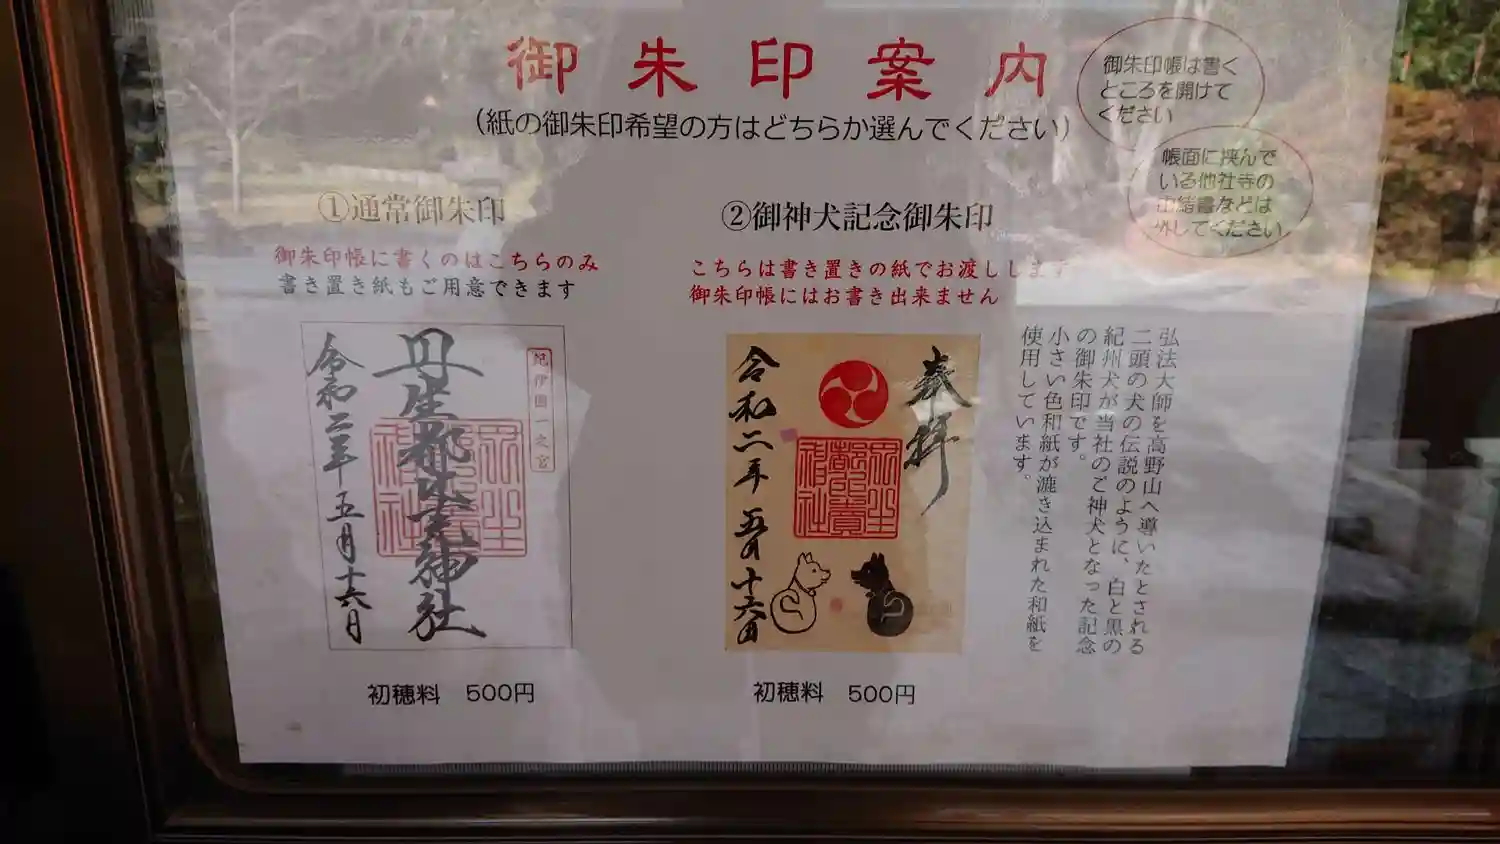 御朱印案内
(紙の御朱印希望の方はどちらか選んでください)
御朱印帳は書く
ところを開けて
ください
帳面に挟んで
いる他社寺の
由緒書などは
外してください
①通常御朱印
御朱印帳に書くのはこちらのみ
書き置き紙もご用意できます
紀伊國一之宮
丹生都比売神社
令和二年五月十六日
初穂料 500円
②御神犬記念御朱印
こちらは書き置きの紙でお渡しします
御朱印帳にはお書き出来ません
奉拝
令和二年五月十六日
初穂料 500円
弘法大師を高野山へ導いたとされる
二頭の犬の伝説のように、白と黒の
紀州犬が当社のご神犬となった記念
の御朱印です。
小さい色和紙が漉き込まれた和紙を
使用しています。